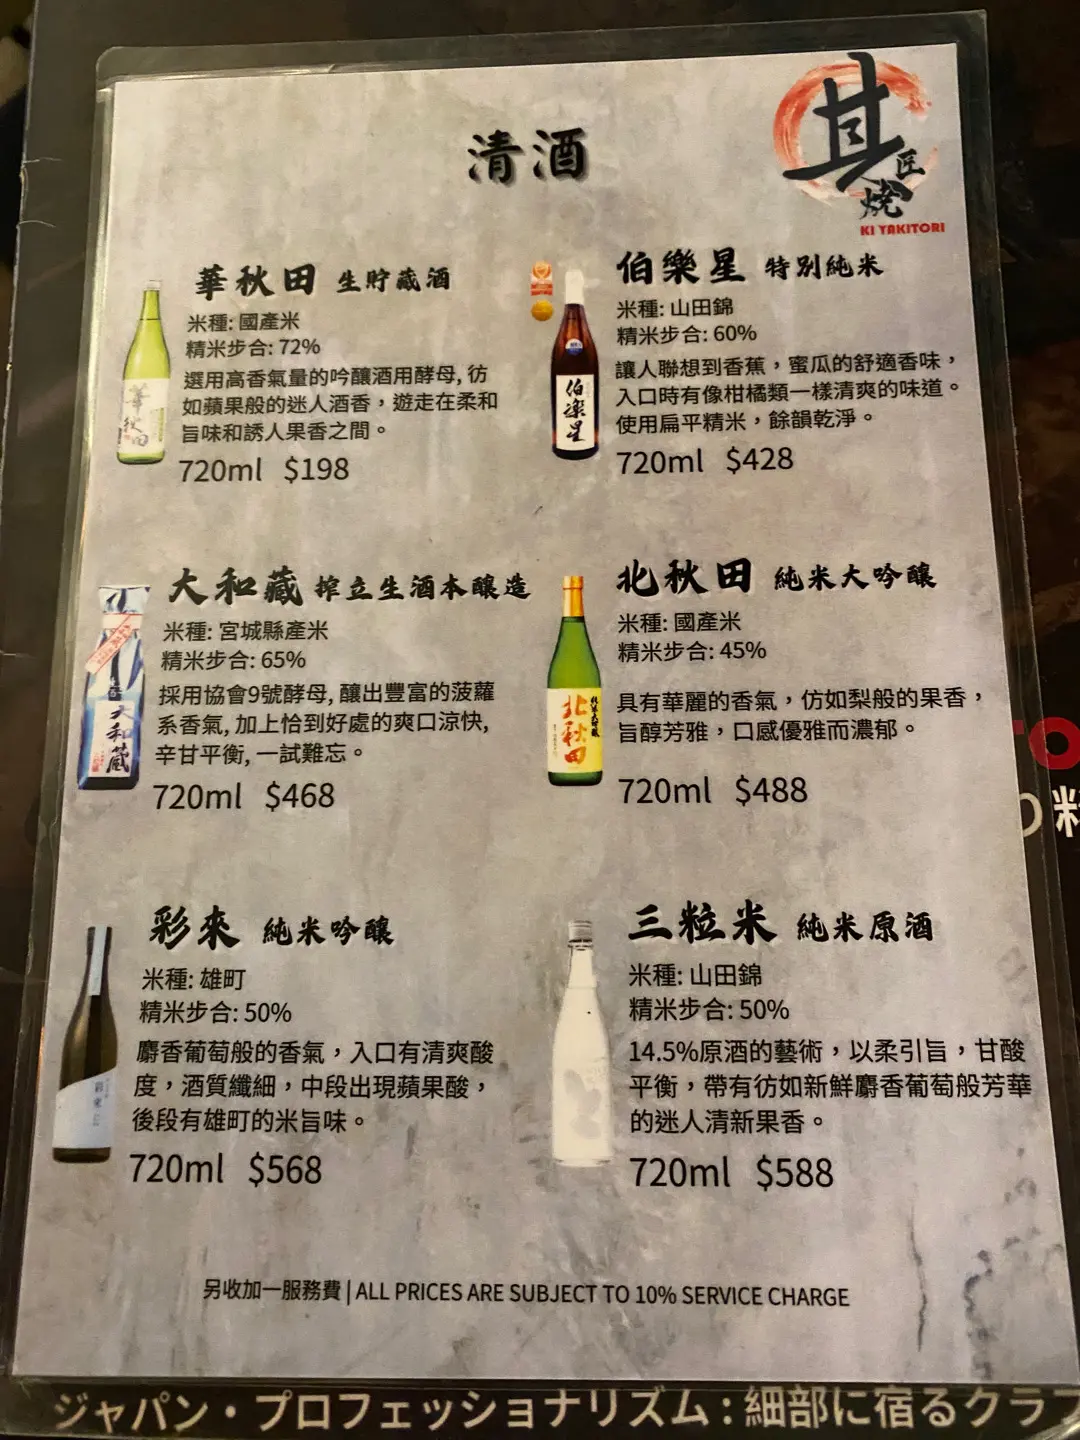 清酒
其
匠
燒
KI YAKITORI
華秋田 生貯藏酒
米種: 國產米
精米步合: 72%
選用高香氣量的吟釀酒用酵母, 彷
如蘋果般的迷人酒香，遊走在柔和
旨味和誘人果香之間。
720ml $198
華
秋田
伯樂星 特別純米
米種: 山田錦
精米步合: 60%
讓人聯想到香蕉，蜜瓜的舒適香味，
入口時有像柑橘類一樣清爽的味道。
使用扁平精米，餘韻乾淨。
720ml $428
伯楽星
大和藏 搾立生酒本釀造
米種: 宮城縣產米
精米步合: 65%
採用協會9號酵母, 釀出豐富的菠蘿
系香氣, 加上恰到好處的爽口涼快,
辛甘平衡, 一試難忘。
720ml $468
大和蔵
北秋田 純米大吟釀
米種: 國產米
精米步合: 45%
具有華麗的香氣，仿如梨般的果香，
旨醇芳雅，口感優雅而濃郁。
720ml $488
純米大吟醸
北秋田
彩來 純米吟釀
米種: 雄町
精米步合: 50%
麝香葡萄般的香氣，入口有清爽酸
度，酒質纖細，中段出現蘋果酸，
後段有雄町的米旨味。
720ml $568
彩來
三粒米 純米原酒
米種: 山田錦
精米步合: 50%
14.5%原酒的藝術，以柔引旨，甘酸
平衡，帶有彷如新鮮麝香葡萄般芳華
的迷人清新果香。
720ml $588
另收加一服務費 | ALL PRICES ARE SUBJECT TO 10% SERVICE CHARGE
TO
の粋
ジャパン・プロフェッショナリズム : 細部に宿るクラフ